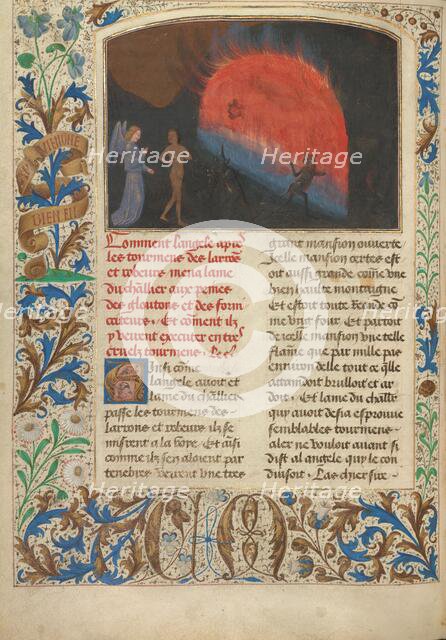 Comment langele apres
les tourmens des larrons
et robeurs mena lame
du chlr aux peines
des gloutons et des forni
cateurs. Et coment ilz
y veirent executer en tres
cruelz tourmens.
Ainsi come
langele auoit et
lame du chlr
passe les tourmens des
larrons et robeurs ilz se
misrent a la voye. Et ausi
comme ilz sen aloient par
tenebres veirent une tres
grant mansion ouuerte
Icelle mansion certes est
oit aussi grande come une
bien haulte montaigne
Et estoit toute reonde co
me ung four. Et partoit
de icelle mansion une telle
flame que par mille pas
enuiron de elle tout ce quelle
attaindoit brulloit et ar
doit. Et lame du chlr
qui auoit desia esprouue
semblables tourmens
aler ne vouloit auant si
dist al angele qui le con
duisoit. Las chier sire
Heritage
Heritage
Heritage
Heritage
Heritage
Heritage